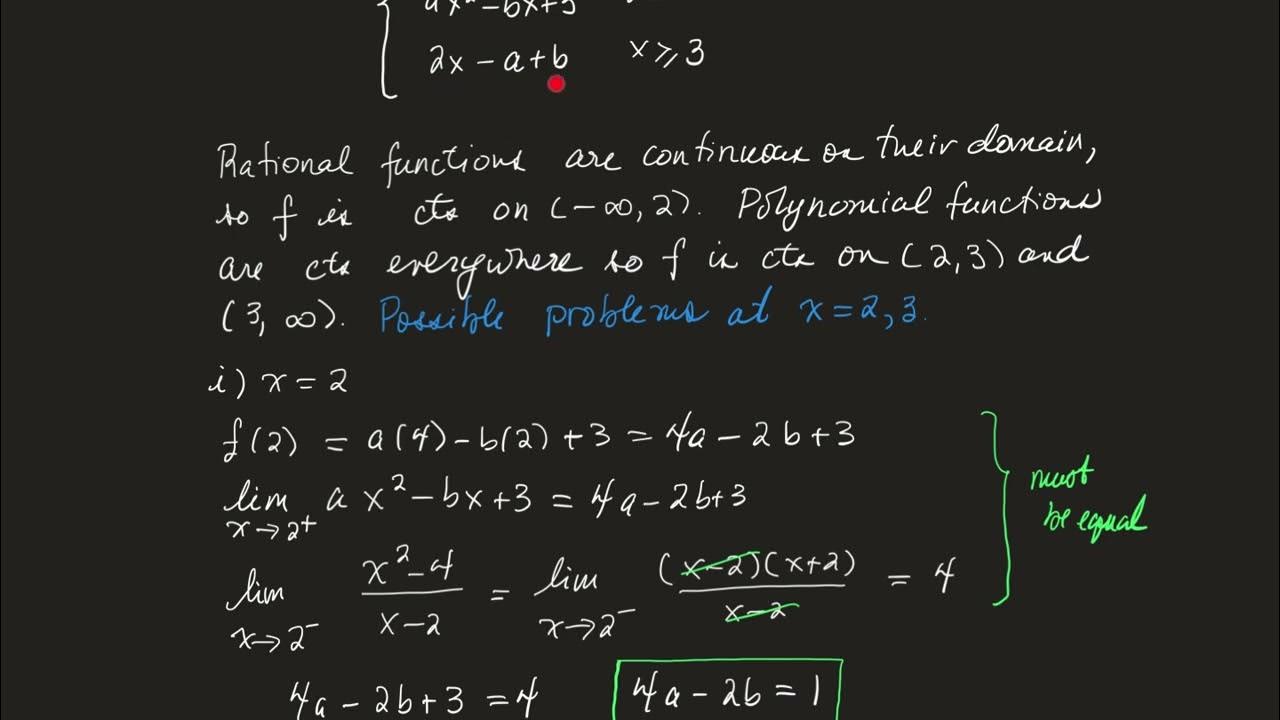 ax² - bx + 3
2x - a + b x ⩾ 3
Rational functions are continuous on their domain,
so f is cts on (-∞, 2). Polynomial functions
are cts everywhere so f is cts on (2,3) and
(3, ∞). Possible problems at x = 2, 3.
i) x = 2
f(2) = a(4) - b(2) + 3 = 4a - 2b + 3
lim x→2⁺ ax² - bx + 3 = 4a - 2b + 3
must
be equal
lim x→2⁻ (x² - 4)/(x - 2) = lim x→2⁻ (x-2)(x+2)/(x-2) = 4
4a - 2b + 3 = 4 4a - 2b = 1